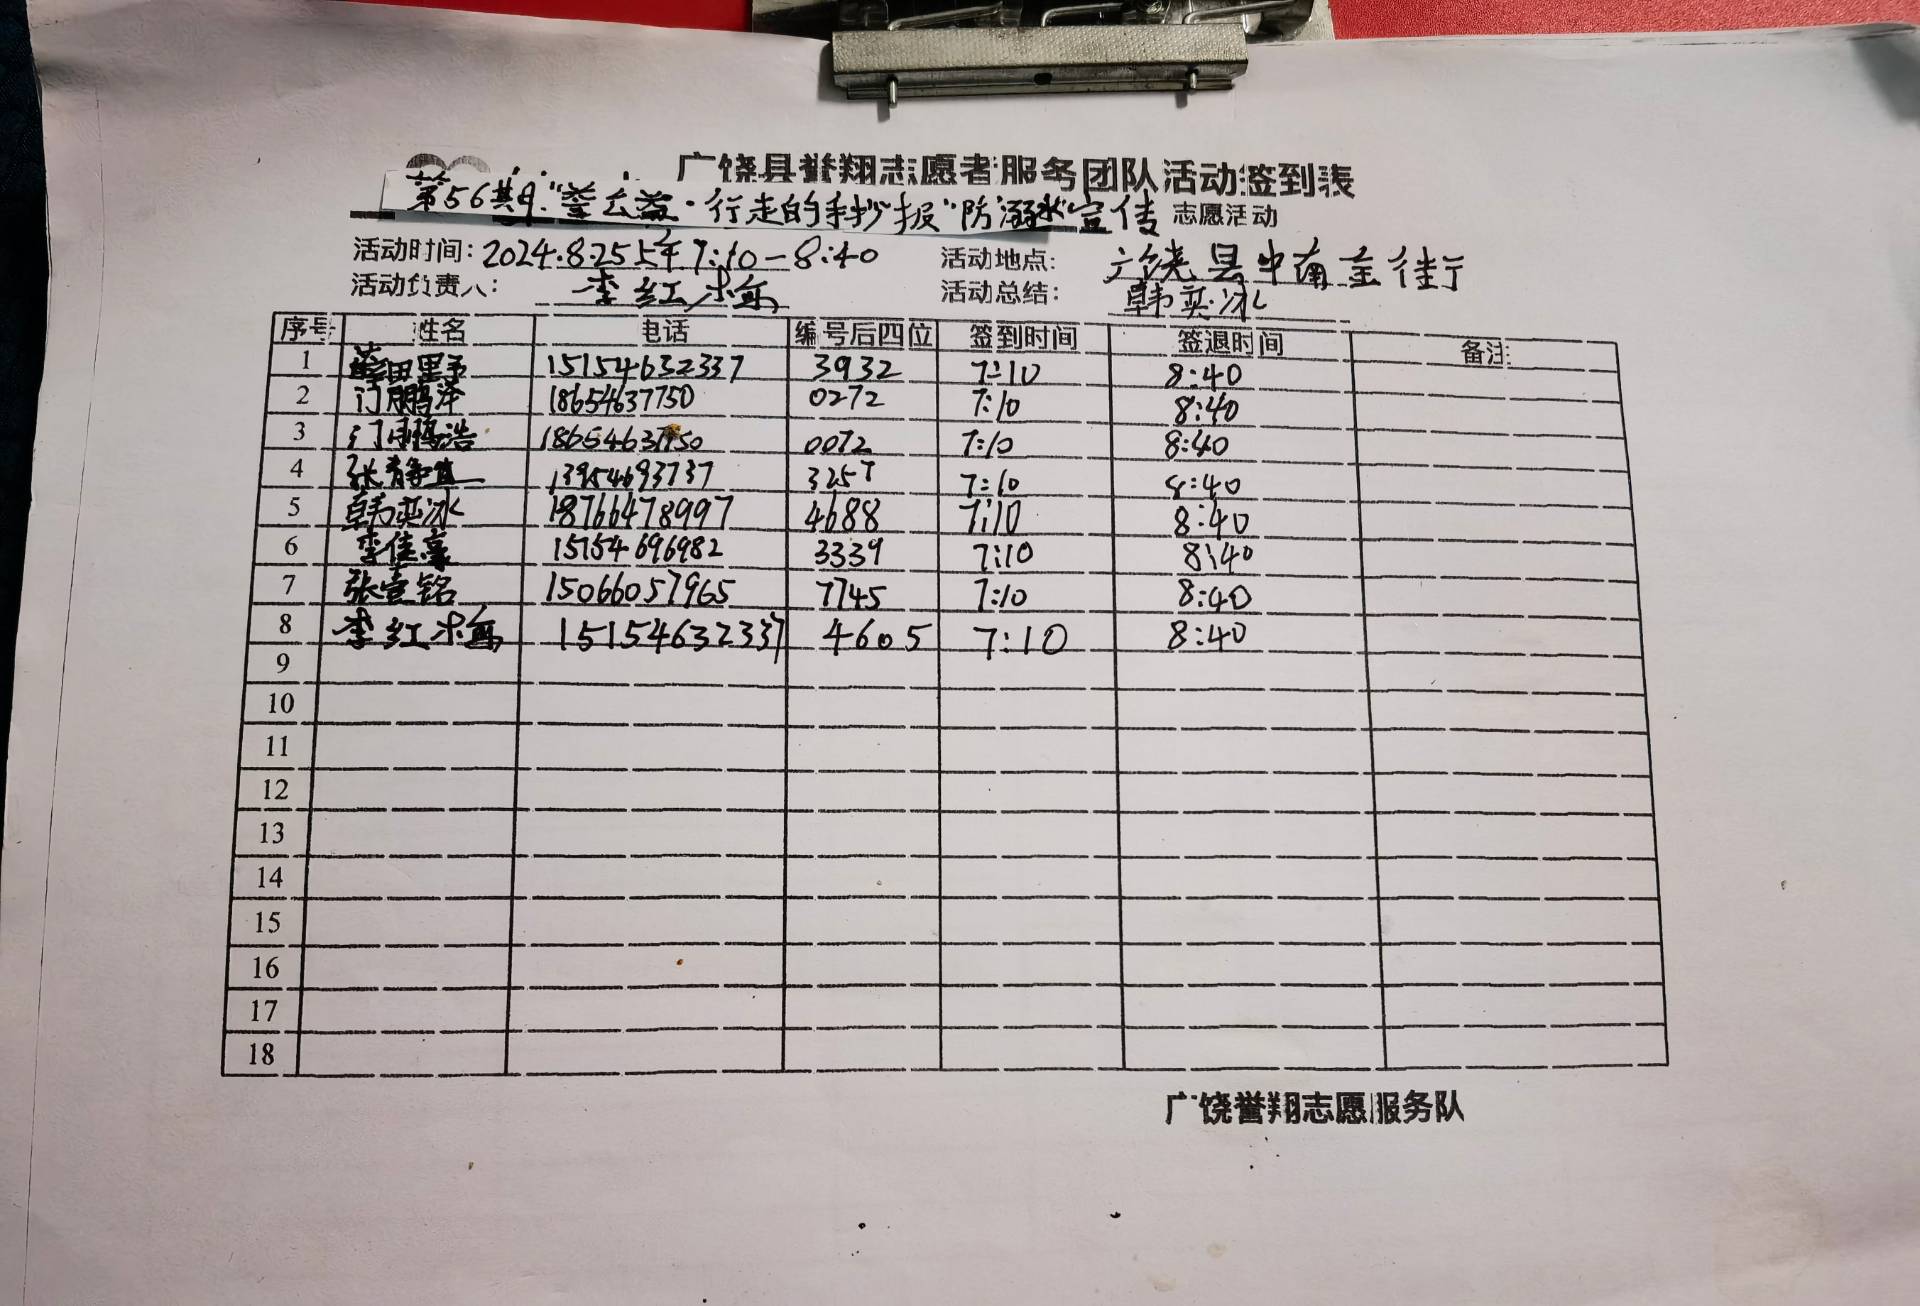 广饶县誉翔志愿者服务团队活动签到表
第56期"益公益·行走的手抄报"防溺水宣传 志愿活动
活动时间:2024.8.25上午7:10-8:40 活动地点: 广饶县中南金街
活动负责人: 李红梅 活动总结: 韩奕冰
序号 姓名 电话 编号后四位 签到时间 签退时间 备注
1 田墅予 15154632337 3932 7:10 8:40
2 门鹏泽 18654637750 0272 7:10 8:40
3 门鹏浩 18654637750 0072 7:10 8:40
4 张静 13954693737 3257 7:10 8:40
5 韩奕冰 18766478997 4688 7:10 8:40
6 李佳豪 15154696982 3339 7:10 8:40
7 张壹铭 15066057965 7745 7:10 8:40
8 李红梅 15154632337 4605 7:10 8:40
9
10
11
12
13
14
15
16
17
18
广饶誉翔志愿服务队